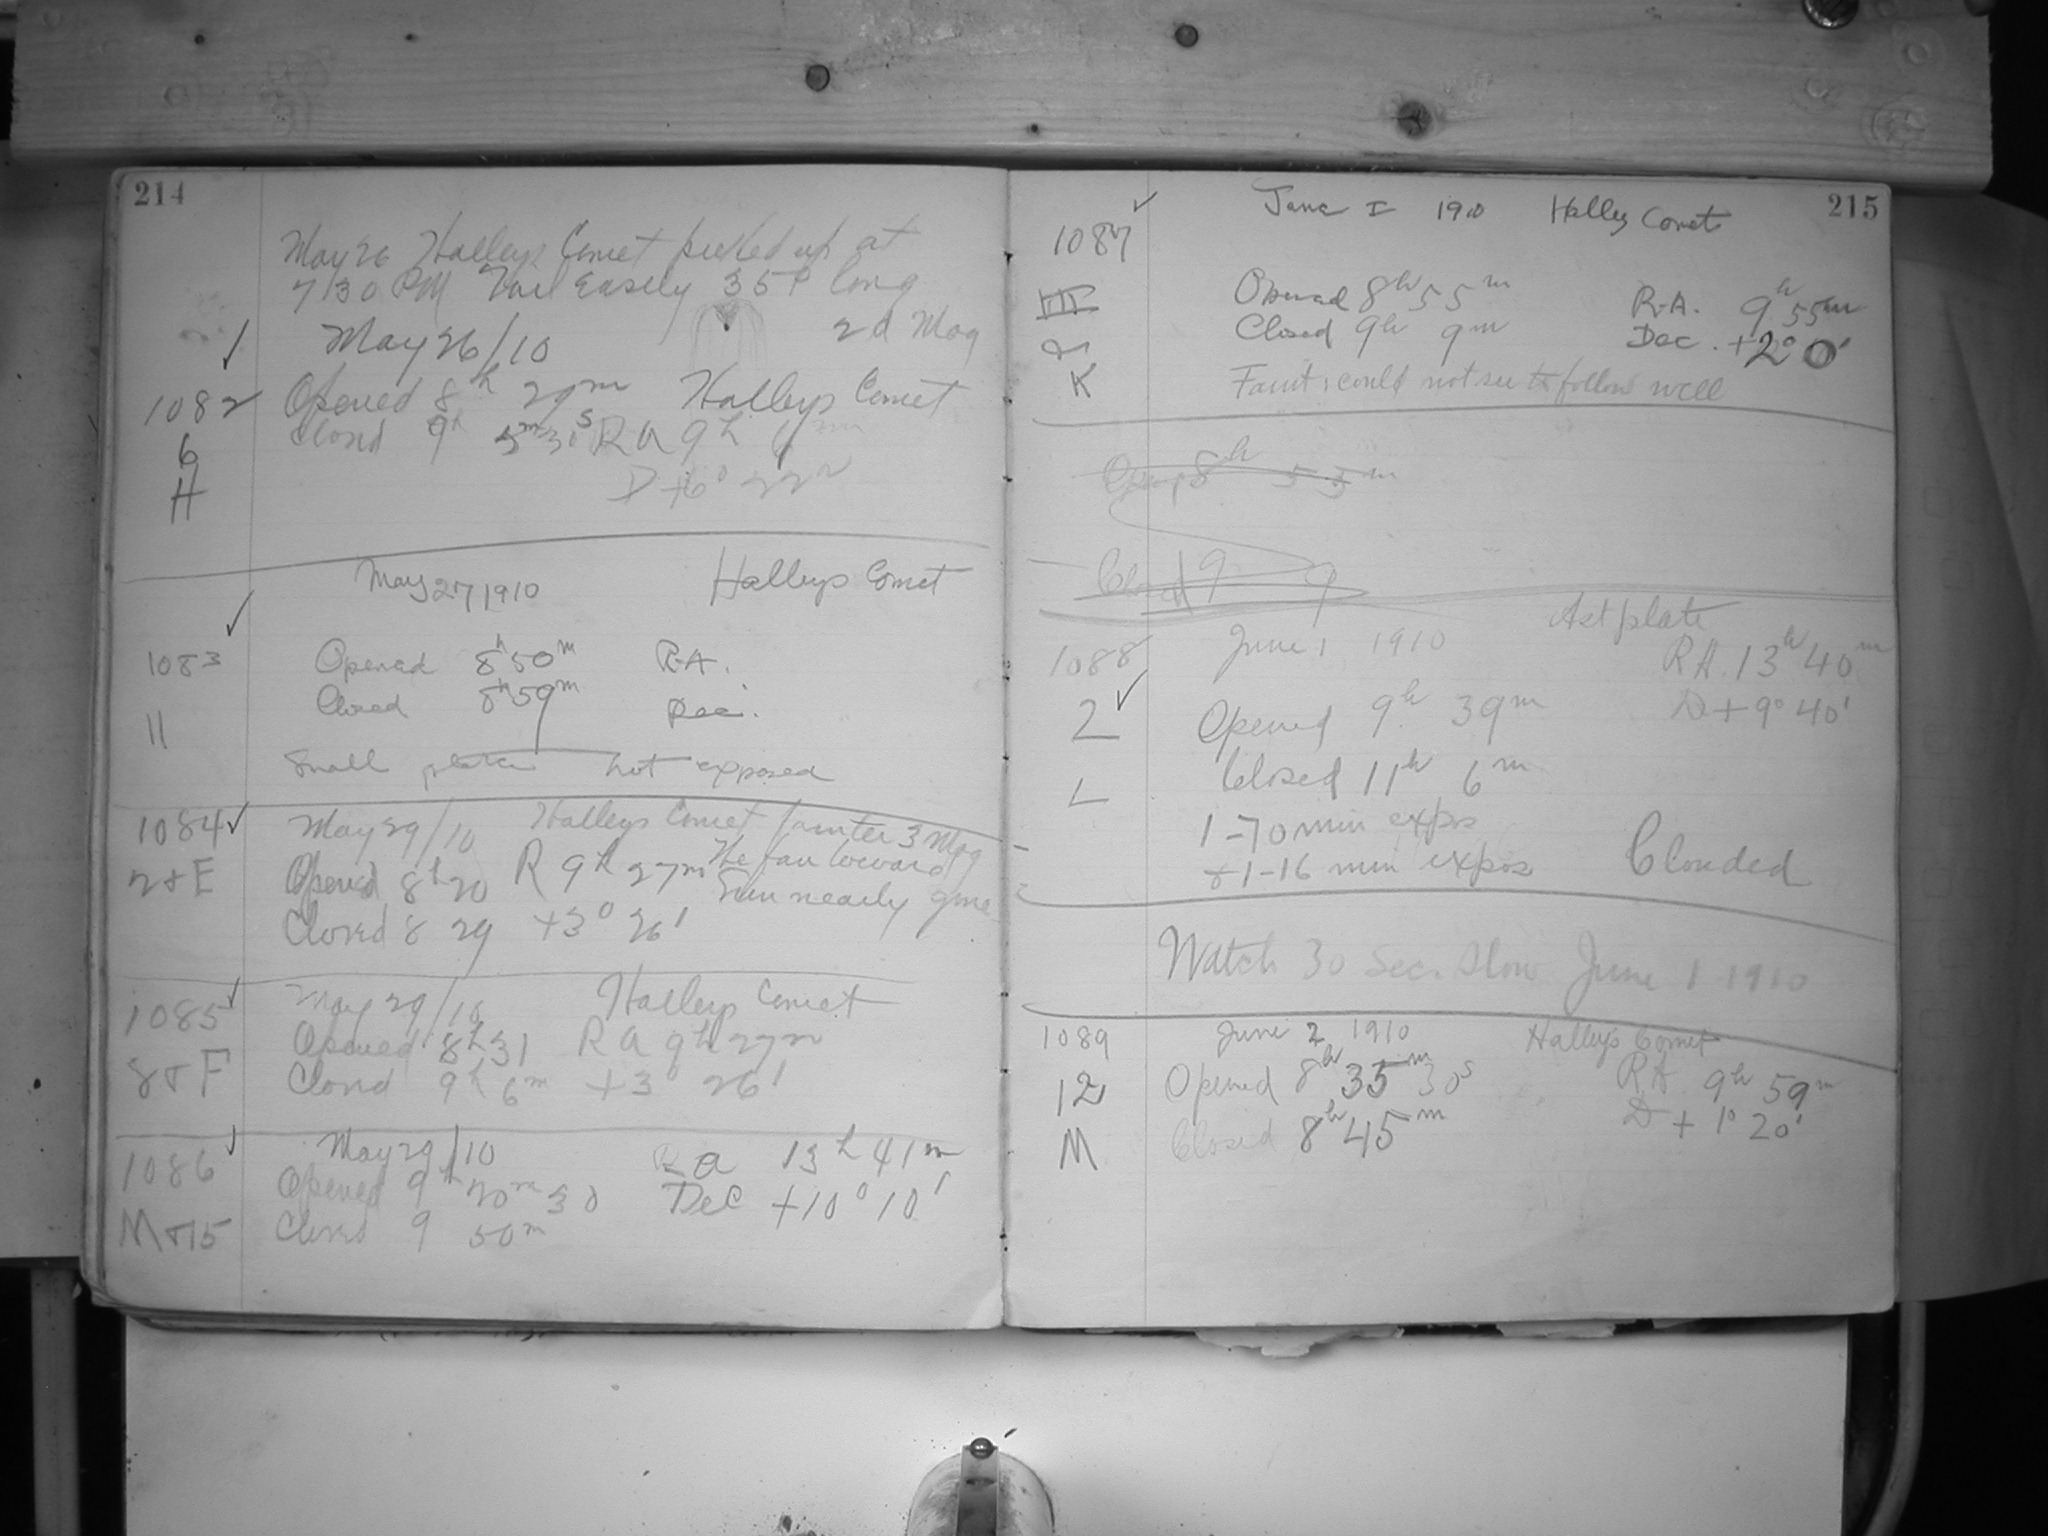 214
May 26 Halleys Comet picked up at
7/30 PM Tail Easily 35° long
2d Mag
May 26/10
1082
Opened 8h 29m Halleys Comet
Closed 9h 5m 30s RA 9h 6m
6
D +6° 22
H
May 27 1910 Halleys Comet
1083
Opened 8h 50m R.A.
Closed 8h 59m Dec.
11
Small plate not exposed
1084
May 29/10 Halleys Comet fainter 3 Mag
2 + E
Opened 8h 20 R 9h 27m The fan toward
Sun nearly gone
Closed 8 29 +3° 26'
1085
May 29/10 Halleys Comet
Opened 8h 31 RA 9h 27m
8 + F
Closed 9h 6m +3° 26'
1086
May 29/10 RA 13h 41m
Opened 9h 20m 30 Dec +10° 10'
M + 15
Closed 9 50m
215
June I 1910 Halley Comet
1087
III
Opened 8h 55m R.A. 9h 55m
Closed 9h 9m Dec. +2° 0'
&
K
Faint: could not see to follow well
Open 8h 55m
Closed 9 9
Ast plate
1088
June 1 1910 RA. 13h 40m
2
Opened 9h 39m D + 9° 40'
Closed 11h 6m
L
1-70 min expos
+ 1-16 min expos Clouded
Watch 30 Sec. Slow June 1 1910
1089
June 2 1910 Halley's Comet
12
Opened 8h 35m 30s RA 9h 59m
Closed 8h 45m D + 1° 20'
M